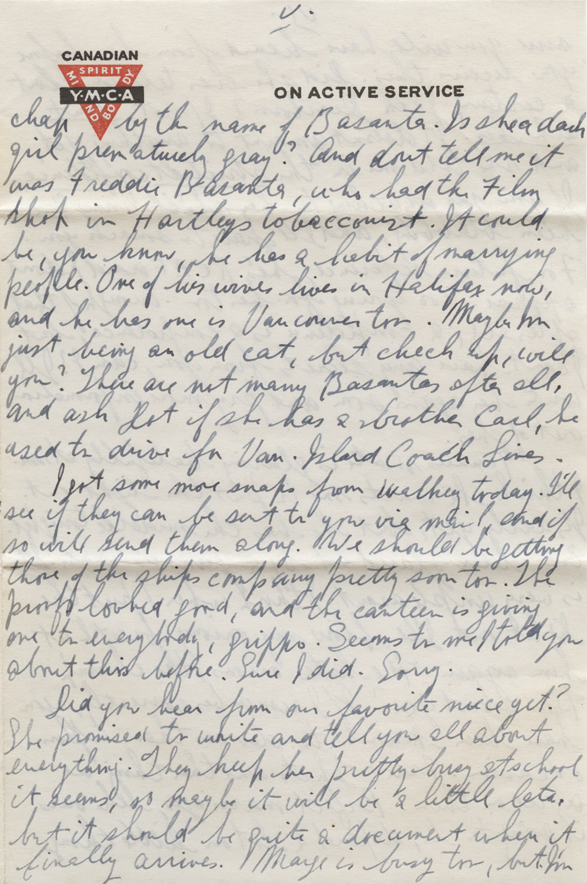 V.
CANADIAN
SPIRIT
MIND
BODY
Y·M·C·A
ON ACTIVE SERVICE
chap by the name of Basanta. Is she a dark
girl prematurely gray? And don't tell me it
was Freddie Basanta, who had the Film
Shop in Hartleys tobacconist. It could
be, you know, he has a habit of marrying
people. One of his wives lives in Halifax now,
and he has one is Vancouver too. Maybe Im
just being an old cat, but check up, will
you? There are not many Basantas after all,
and ask Dot if she has a brother Carl, he
used to drive for Van. Island Coach Lines.
I got some more snaps from Walkey today. I'll
see if they can be sent to you via mail, and if
so will send them along. We should be getting
those of the ships company pretty soon too. The
proofs looked good, and the canteen is giving
one to everybody, grippo. Seems to me I told you
about this before. Sure I did. Sorry.
Did you hear from our favorite niece yet?
She promised to write and tell you all about
everything. They keep her pretty busy at school
it seems, so maybe it will be a little late,
but it should be quite a document when it
finally arrives. Marge is busy too, but Im